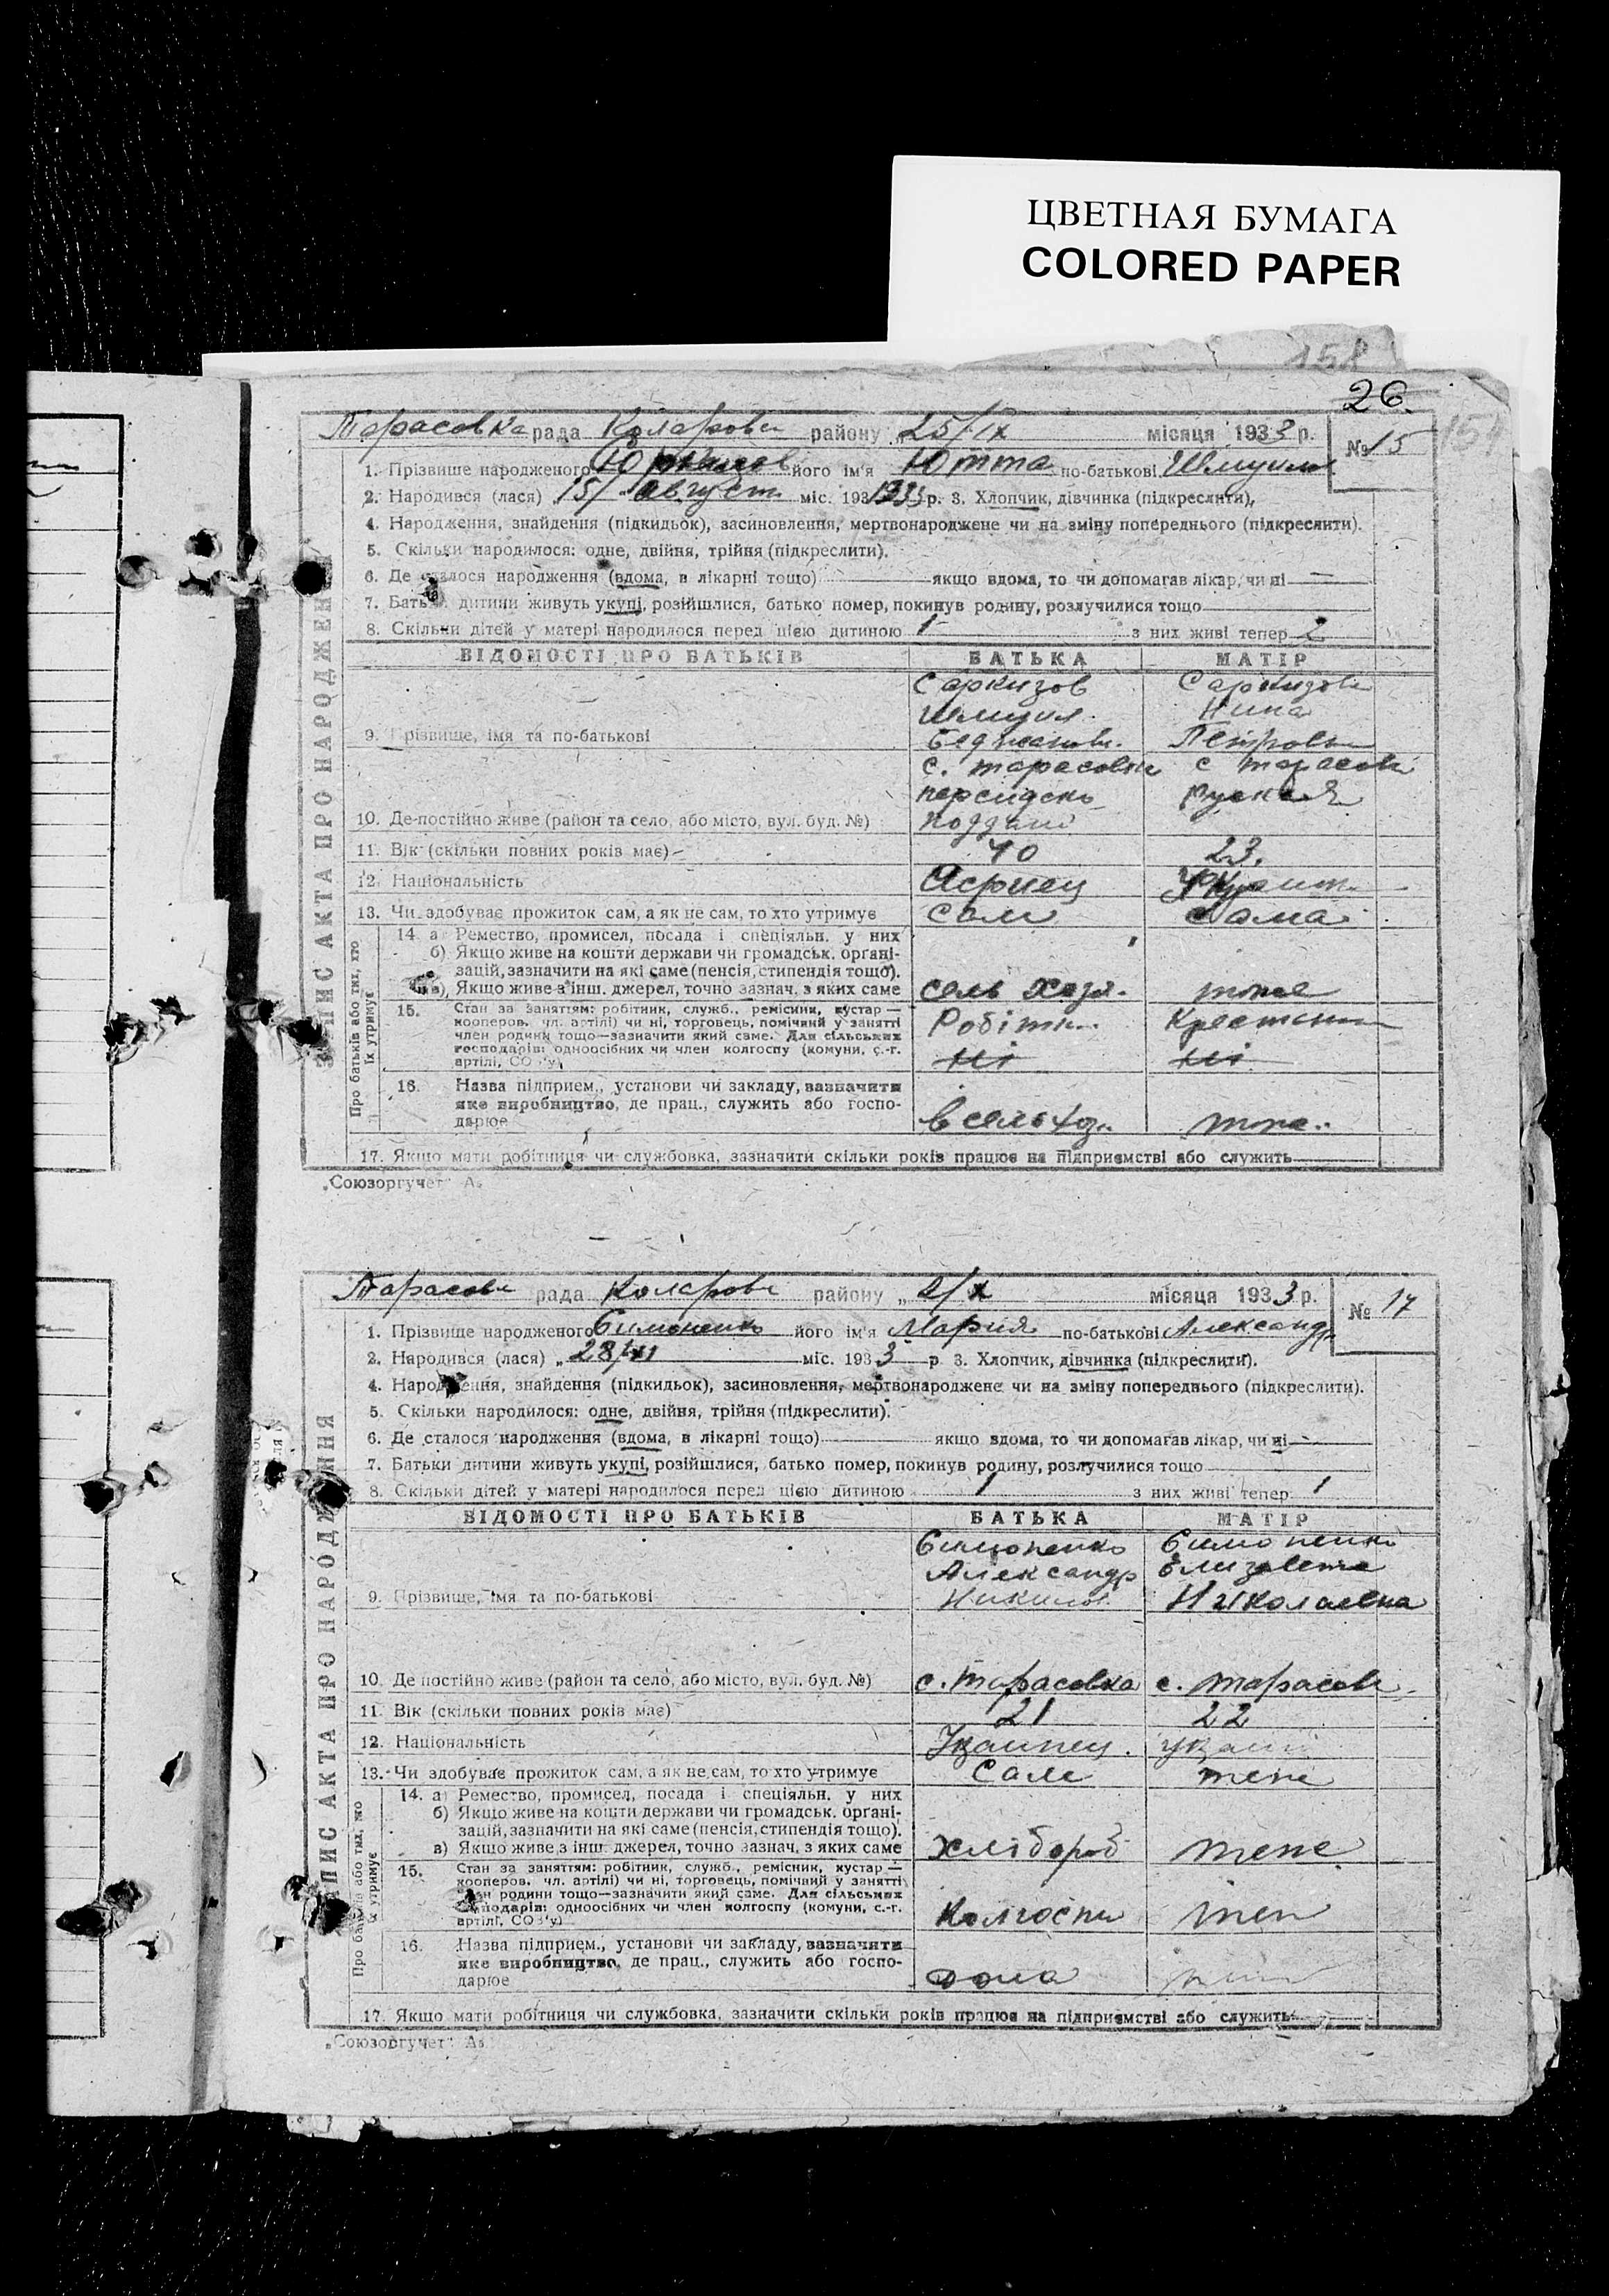 ЦВЕТНАЯ БУМАГА
COLORED PAPER
158
26.
154
Тарасовка рада Коларовск району „25/IX місяця 1933 р. № 15
1. Прізвище народженого його ім'я Ютта по-батькові Шмуил
2. Народився (лася) 15/ август міс. 193 1933 р. 3. Хлопчик, дівчинка (підкреслити).
4. Народження, знайдення (підкидьок), засиновлення, мертвонароджене чи на зміну попереднього (підкреслити).
5. Скільки народилося: одне, двійня, трійня (підкреслити).
6. Де сталося народження (вдома, в лікарні тощо) якщо вдома, то чи допомагав лікар, чи ні —
7. Батьки дитини живуть укупі, розійшлися, батько помер, покинув родину, розлучилися тощо
8. Скільки дітей у матері народилося перед цією дитиною 1 з них живі тепер 2
ВІДОМОСТІ ПРО БАТЬКІВ БАТЬКА МАТІР
Саркизов Саркизова
Шмуил Нина
9. Прізвище, імя та по-батькові Беджанови. Петровн
с. тарасовка с тарасов
персидско руская
10. Де постійно живе (район та село, або місто, вул. буд. №) поддані
11. Вік (скільки повних років має) 40 23.
12. Національність Асриец
13. Чи здобуває прожиток сам, а як не сам, то хто утримує сам сама
14. а) Ремество, промисел, посада і спеціяльн. у них
б) Якщо живе на кошти держави чи громадськ. органі-
зацій, зазначити на які саме (пенсія, стипендія тощо).
в) Якщо живе з інш. джерел, точно зазнач. з яких саме сель хозя. тоже
15. Стан за заняттям: робітник, служб., ремісник, кустар —
кооперов. чл. артілі) чи ні, торговець, помічний у занятті
член родини тощо—зазначити який саме. Для сільських
господарів: одноосібних чи член колгоспу (комуни, с.-г.
артілі, СОЗ'у)
Робітн. Крестьян
ні ні
16. Назва підприєм., установи чи закладу, зазначити
яке виробництво, де прац., служить або госпо-
дарює в сельхоз. тоже.
17. Якщо мати робітниця чи службовка, зазначити скільки років працює на підприємстві або служить
ЗАПИС АКТА ПРО НАРОДЖЕННЯ
Про батьків або тих, хто їх утримує
„Союзоргучет“
Тарасовк рада Коларовк району „2/X місяця 1933 р. № 17
1. Прізвище народженого Симоненко його ім'я Мария по-батькові Александр
2. Народився (лася) „28/ міс. 1933 р. 3. Хлопчик, дівчинка (підкреслити).
4. Народження, знайдення (підкидьок), засиновлення, мертвонароджене чи на зміну попереднього (підкреслити).
5. Скільки народилося: одне, двійня, трійня (підкреслити).
6. Де сталося народження (вдома, в лікарні тощо) якщо вдома, то чи допомагав лікар, чи ні
7. Батьки дитини живуть укупі, розійшлися, батько помер, покинув родину, розлучилися тощо
8. Скільки дітей у матері народилося перед цією дитиною 1 з них живі тепер 1
ВІДОМОСТІ ПРО БАТЬКІВ БАТЬКА МАТІР
Симоненко Симоненко
Александр Елизавета
9. Прізвище, імя та по-батькові Николаевна
10. Де постійно живе (район та село, або місто, вул. буд. №) с. Тарасовка с. тарасовк.
11. Вік (скільки повних років має) 21 22
12. Національність
13. Чи здобуває прожиток сам, а як не сам, то хто утримує Сам теже
14. а) Ремество, промисел, посада і спеціяльн. у них
б) Якщо живе на кошти держави чи громадськ. органі-
зацій, зазначити на які саме (пенсія, стипендія тощо).
в) Якщо живе з інш. джерел, точно зазнач. з яких саме хлібороб теже
15. Стан за заняттям: робітник, служб., ремісник, кустар —
кооперов. чл. артілі) чи ні, торговець, помічний у занятті
член родини тощо—зазначити який саме. Для сільських
господарів: одноосібних чи член колгоспу (комуни, с.-г.
артілі, СОЗ'у) Колгоспн
16. Назва підприєм., установи чи закладу, зазначити
яке виробництво, де прац., служить або госпо-
дарює дома
17. Якщо мати робітниця чи службовка, зазначити скільки років працює на підприємстві або служить
ЗАПИС АКТА ПРО НАРОДЖЕННЯ
Про батьків або тих, хто їх утримує
„Союзоргучет“